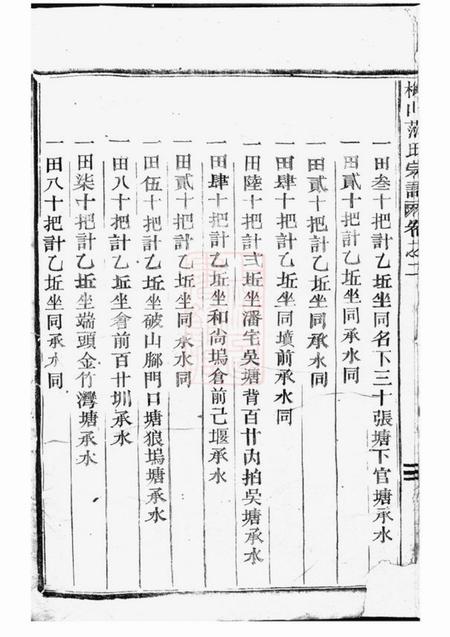 山 氏宗譜 卷之二
一田叁十把計乙坵坐同名下三十張塘下官塘承水
一田貳十把計乙坵坐同承水同
一田貳十把計乙坵坐同承水同
一田肆十把計乙坵坐同墳前承水同
一田陸十把計弍坵坐潘宅吳塘背百廿內拍吳塘承水
一田肆十把計乙坵坐和尚塢倉前己堰承水
一田貳十把計乙坵坐同承水同
一田伍十把計乙坵坐破山腳門口塘狼塢塘承水
一田八十把計乙坵坐倉前百廿圳承水
一田柒十把計乙坵坐端頭金竹灣塘承水
一田八十把計乙坵坐同承水同